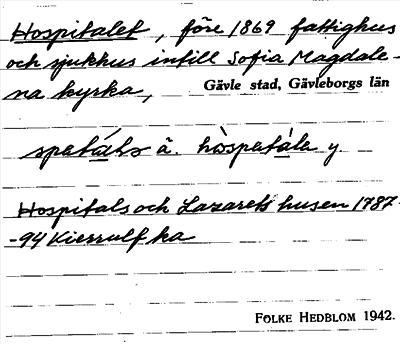 Hospitalet, före 1869 fattighus
och sjukhus intill Sofia Magdale-
na kyrka,
Gävle stad, Gävleborgs län
spetáls ä. hòspetále y.
Hospitals och Lazarets husen 1787-
-94 Kierrulf ka
FOLKE HEDBLOM 1942.